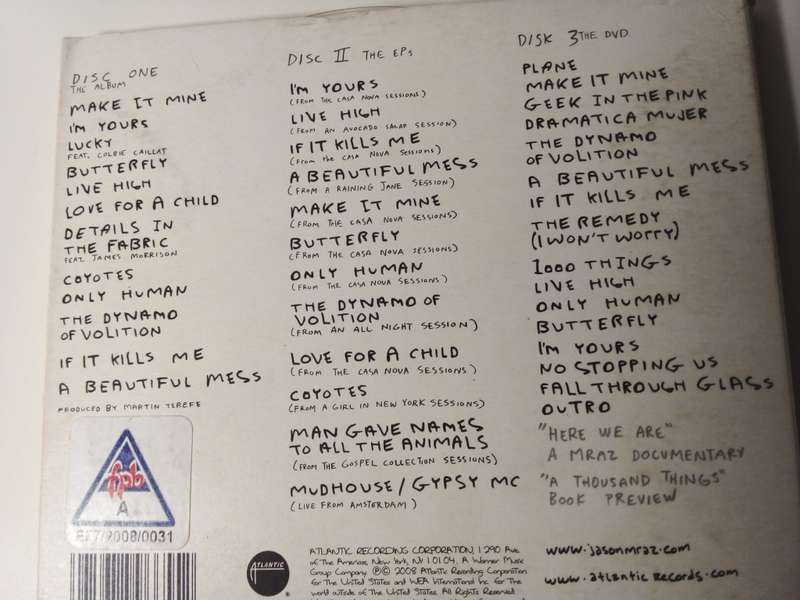 DISC ONE
THE ALBUM
MAKE IT MINE
I'M YOURS
LUCKY
FEAT. COLBIE CAILLAT
BUTTERFLY
LIVE HIGH
LOVE FOR A CHILD
DETAILS IN
THE FABRIC
FEAT. JAMES MORRISON
COYOTES
ONLY HUMAN
THE DYNAMO
OF VOLITION
IF IT KILLS ME
A BEAUTIFUL MESS
PRODUCED BY MARTIN TEREFE
fpb
A
/2008/0031
DISC II THE EPs
I'M YOURS
(FROM THE CASA NOVA SESSIONS)
LIVE HIGH
(FROM AN AVOCADO SALAD SESSION)
IF IT KILLS ME
(FROM the CASA NOVA SESSIONS)
A BEAUTIFUL MESS
(FROM A RAINING JANE SESSION)
MAKE IT MINE
(FROM THE CASA NOVA SESSIONS)
BUTTERFLY
(FROM THE CASA NOVA SESSIONS)
ONLY HUMAN
(FROM THE CASA NOVA SESSIONS)
THE DYNAMO OF
VOLITION
(FROM AN ALL NIGHT SESSION)
LOVE FOR A CHILD
(FROM THE CASA NOVA SESSIONS)
COYOTES
(FROM A GIRL IN NEW YORK SESSIONS)
MAN GAVE NAMES
TO ALL THE ANIMALS
(FROM THE GOSPEL COLLECTION SESSIONS)
MUDHOUSE / GYPSY MC
(LIVE FROM AMSTERDAM)
DISK 3 THE DVD
PLANE
MAKE IT MINE
GEEK IN THE PINK
DRAMATICA MUJER
THE DYNAMO
OF VOLITION
A BEAUTIFUL MESS
IF IT KILLS ME
THE REMEDY
(I WON'T WORRY)
1000 THINGS
LIVE HIGH
ONLY HUMAN
BUTTERFLY
I'M YOURS
NO STOPPING US
FALL THROUGH GLASS
OUTRO
"HERE WE ARE"
A MRAZ DOCUMENTARY
"A THOUSAND THINGS"
BOOK PREVIEW
ATLANTIC
ATLANTIC RECORDING CORPORATION, 1290 Ave
of the Americas, New York, NY 10104. A Warner Music
Group Company. ℗© 2008 Atlantic Recording Corporation
for the United States and WEA International Inc. for the
world outside of the United States. All Rights Reserved
www.jasonmraz.com
www.atlanticrecords.com